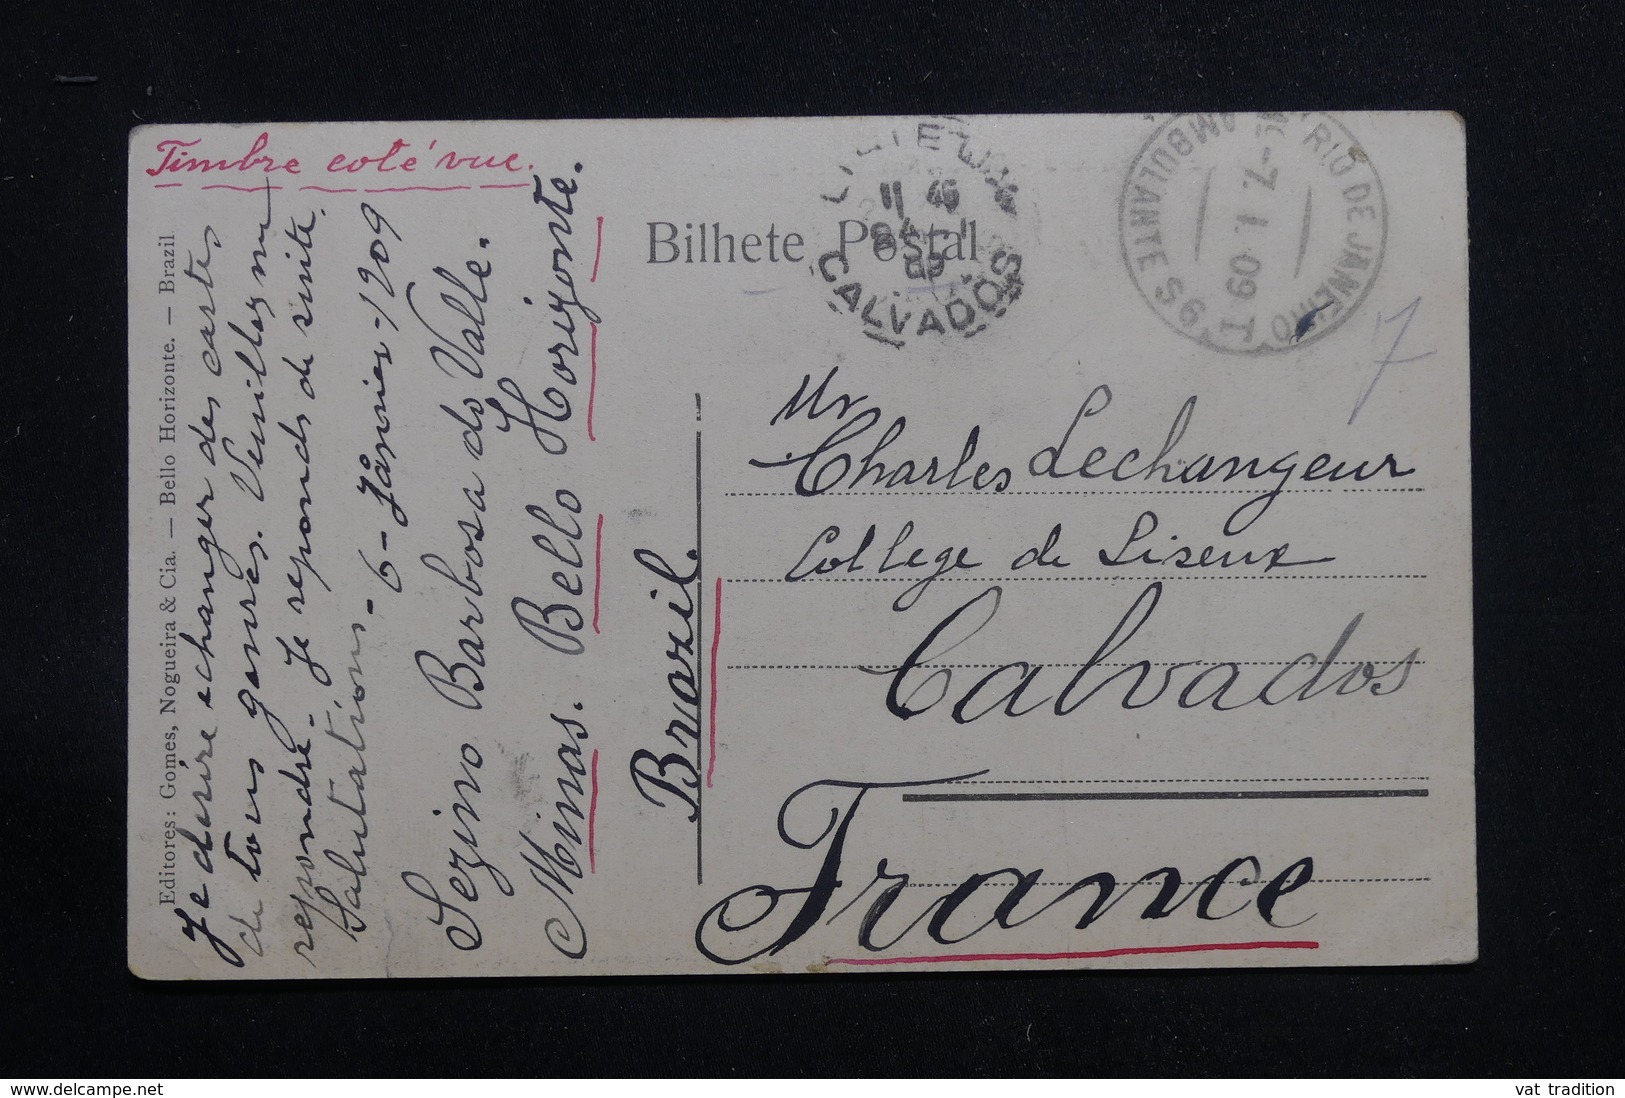 Timbre coté vue.
Editores: Gomes, Nogueira & Cia. — Bello Horizonte. — Brazil
Je desire echanger des cartes
de tous genres. Veuillez me
repondre. Je reponds de suite.
Salutations. 6-Janvier-1909
Sezino Barbosa do Valle.
Minas. Bello Horizonte.
Brazil.
Bilhete Postal
CALVADOS
RIO DE JANEIRO
AMBULANTE
7. 1. 09
7
Mr
Charles Lechangeur
College de Liseux
Calvados
France
vat tradition